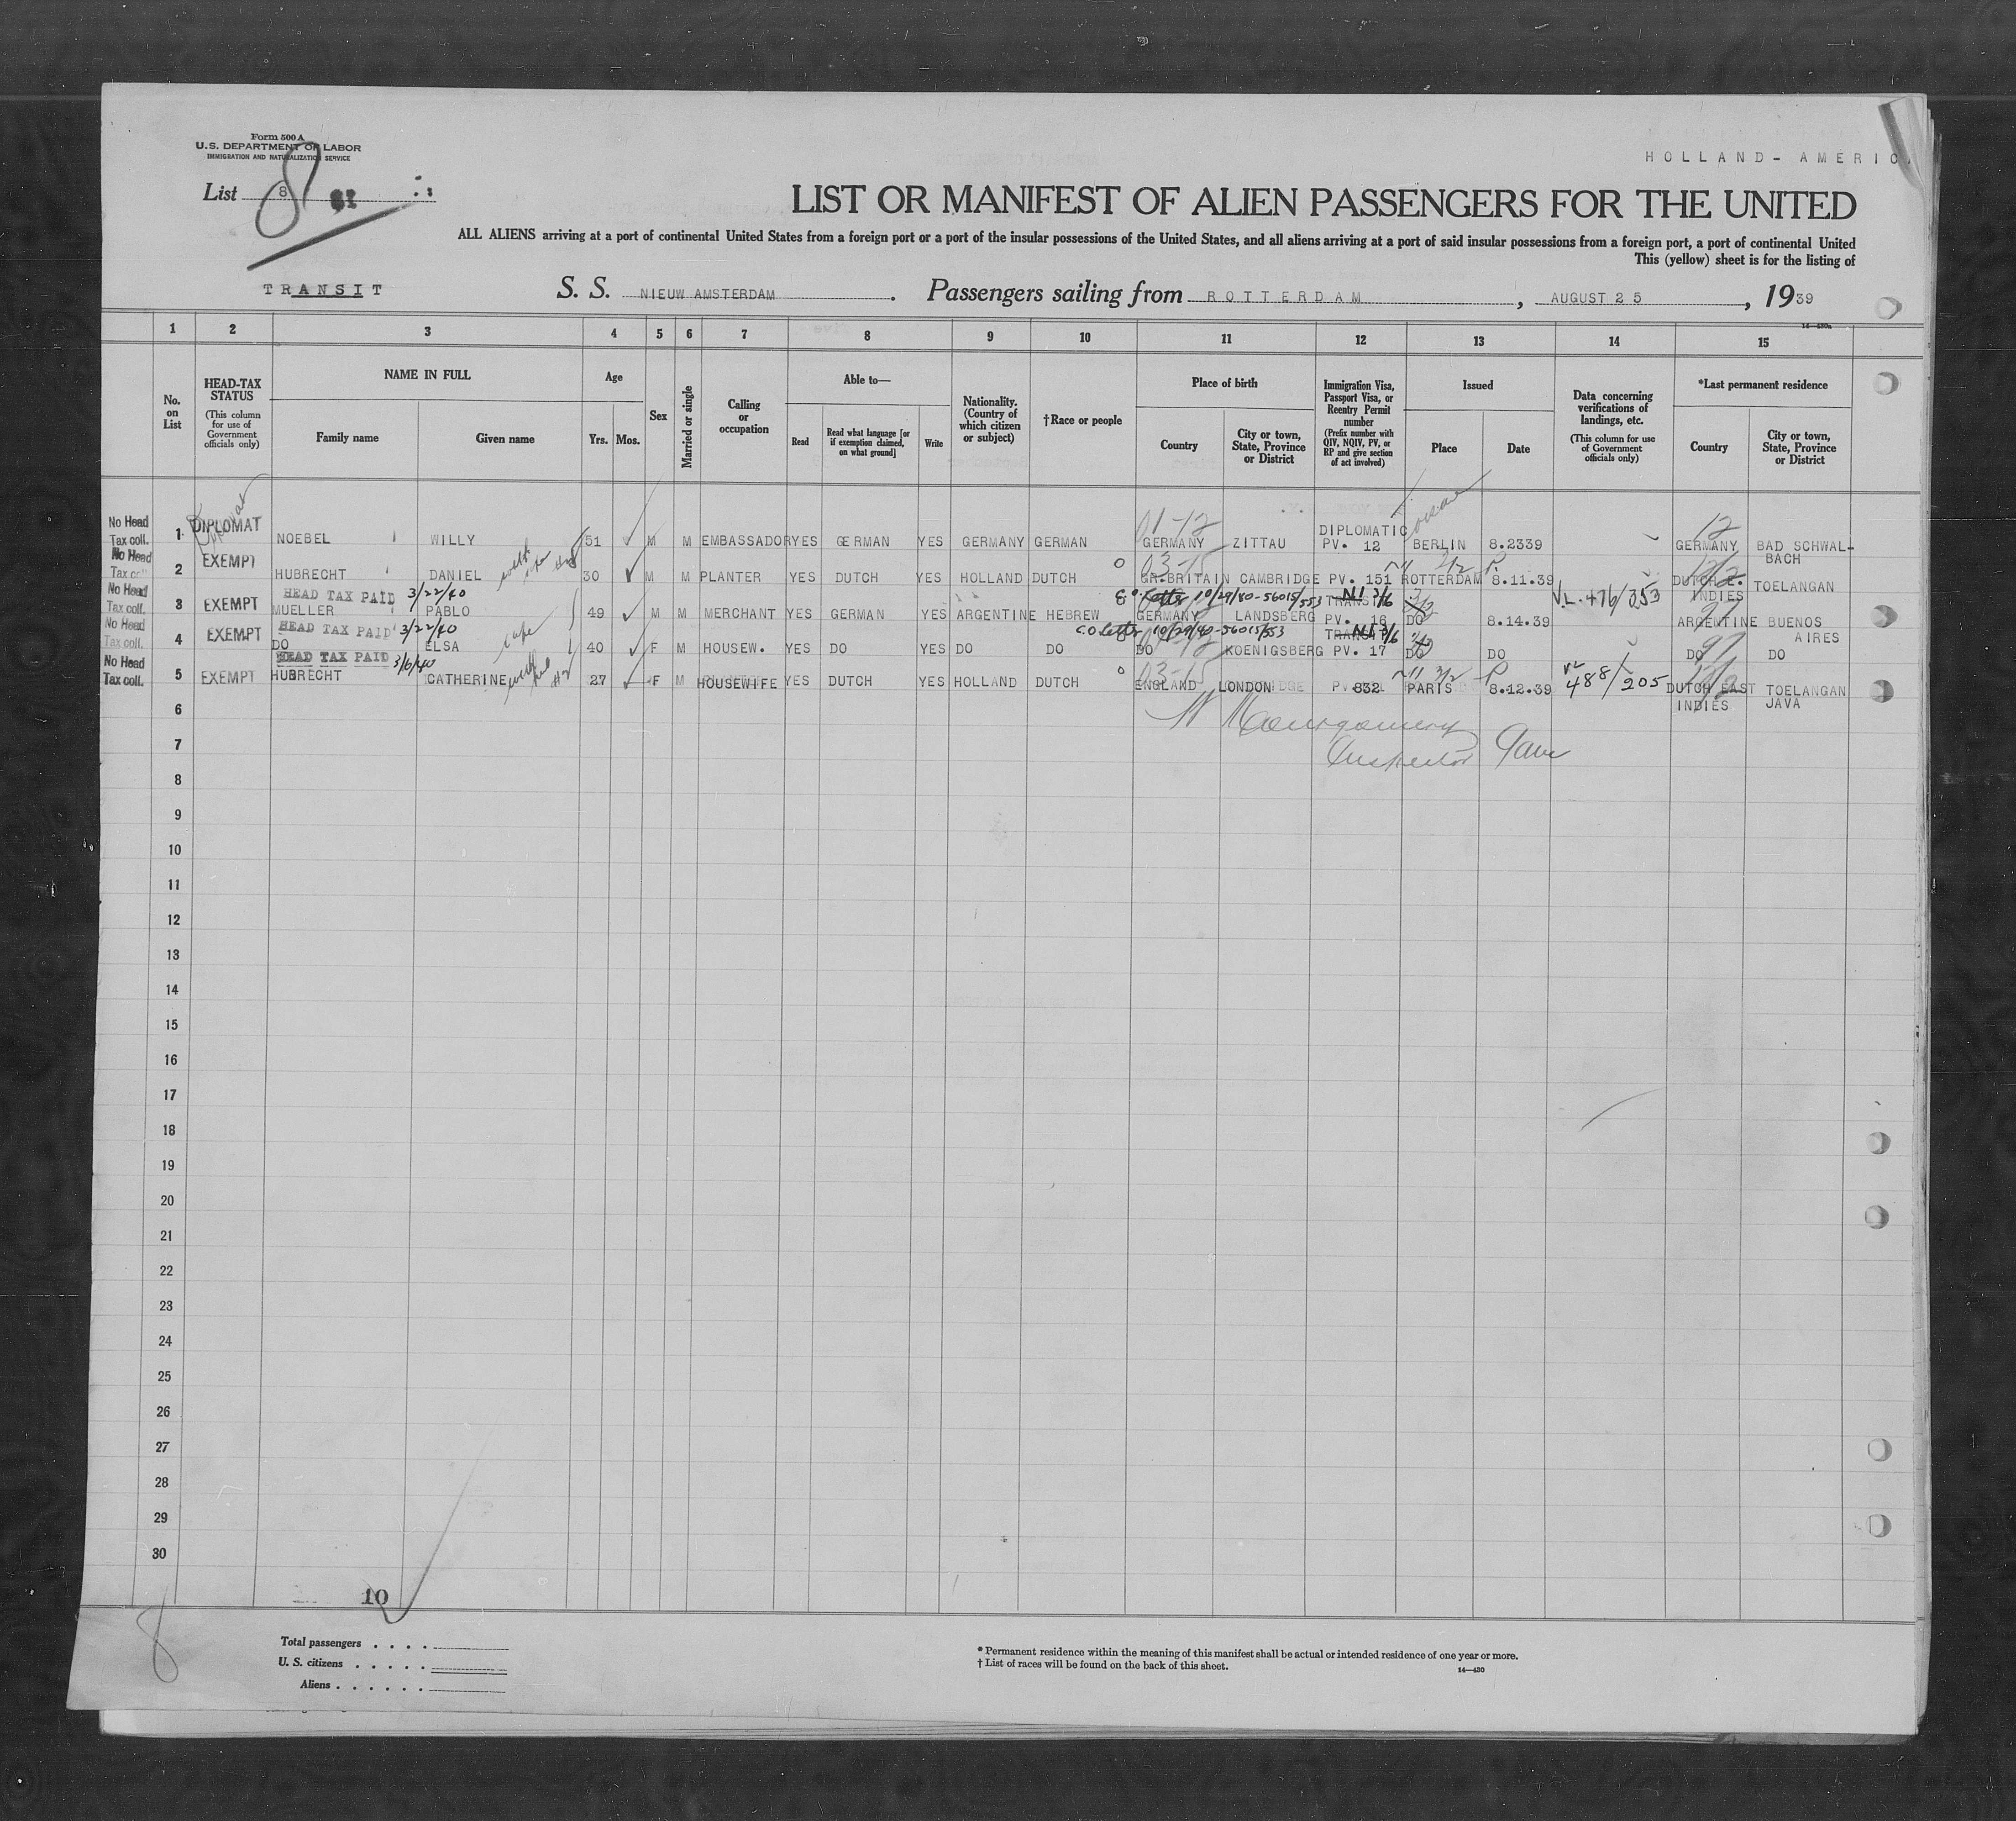 Form 500 A
U.S. DEPARTMENT OF LABOR
IMMIGRATION AND NATURALIZATION SERVICE
HOLLAND- AMERIC
List 8
8
LIST OR MANIFEST OF ALIEN PASSENGERS FOR THE UNITED
ALL ALIENS arriving at a port of continental United States from a foreign port or a port of the insular possessions of the United States, and all aliens arriving at a port of said insular possessions from a foreign port, a port of continental United
This (yellow) sheet is for the listing of
TRANSIT S. S. NIEUW AMSTERDAM. Passengers sailing from ROTTERDAM, AUGUST 25, 1939
1 2 3 4 5 6 7 8 9 10 11 12 13 14 15
No. on List
HEAD-TAX STATUS (This column for use of Government officials only)
NAME IN FULL
Family name Given name
Age
Yrs. Mos.
Sex
Married or single
Calling or occupation
Able to—
Read Read what language [or if exemption claimed, on what ground] Write
Nationality. (Country of which citizen or subject)
†Race or people
Place of birth
Country City or town, State, Province or District
Immigration Visa, Passport Visa, or Reentry Permit number (Prefix number with QIV, NQIV, PV, or RP and give section of act involved)
Issued
Place Date
Data concerning verifications of landings, etc. (This column for use of Government officials only)
*Last permanent residence
Country City or town, State, Province or District
No Head Tax coll. 1 DIPLOMAT NOEBEL WILLY 51 M M EMBASSADOR YES GERMAN YES GERMANY GERMAN 01-12 GERMANY ZITTAU DIPLOMATIC PV. 12 BERLIN 8.2339 12 GERMANY BAD SCHWAL-BACH
No Head Tax coll. 2 EXEMPT HUBRECHT DANIEL 30 M M PLANTER YES DUTCH YES HOLLAND DUTCH 03-15 GR.BRITAIN CAMBRIDGE PV. 151 ROTTERDAM 8.11.39 DUTCH E. INDIES TOELANGAN
HEAD TAX PAID 3/22/40
No Head Tax coll. 3 EXEMPT MUELLER PABLO 49 M M MERCHANT YES GERMAN YES ARGENTINE HEBREW GERMANY LANDSBERG TRANSIT PV. 16 DO 8.14.39 V.L. 476/353 ARGENTINE BUENOS AIRES
HEAD TAX PAID 3/22/40 C.O. Letter 10/29/40-56015/553
No Head Tax coll. 4 EXEMPT DO ELSA 40 F M HOUSEW. YES DO YES DO DO DO KOENIGSBERG TRANSIT PV. 17 DO DO DO DO
HEAD TAX PAID 3/6/40
No Head Tax coll. 5 EXEMPT HUBRECHT CATHERINE 27 F M HOUSEWIFE YES DUTCH YES HOLLAND DUTCH 03-15 ENGLAND LONDON PV. 832 PARIS 8.12.39 488/205 DUTCH EAST INDIES TOELANGAN JAVA
6
Montgomery
7
Inspector
8
9
10
11
12
13
14
15
16
17
18
19
20
21
22
23
24
25
26
27
28
29
30
10
8
Total passengers . . . .
U. S. citizens . . . . .
Aliens . . . . . .
* Permanent residence within the meaning of this manifest shall be actual or intended residence of one year or more.
† List of races will be found on the back of this sheet.
14—430